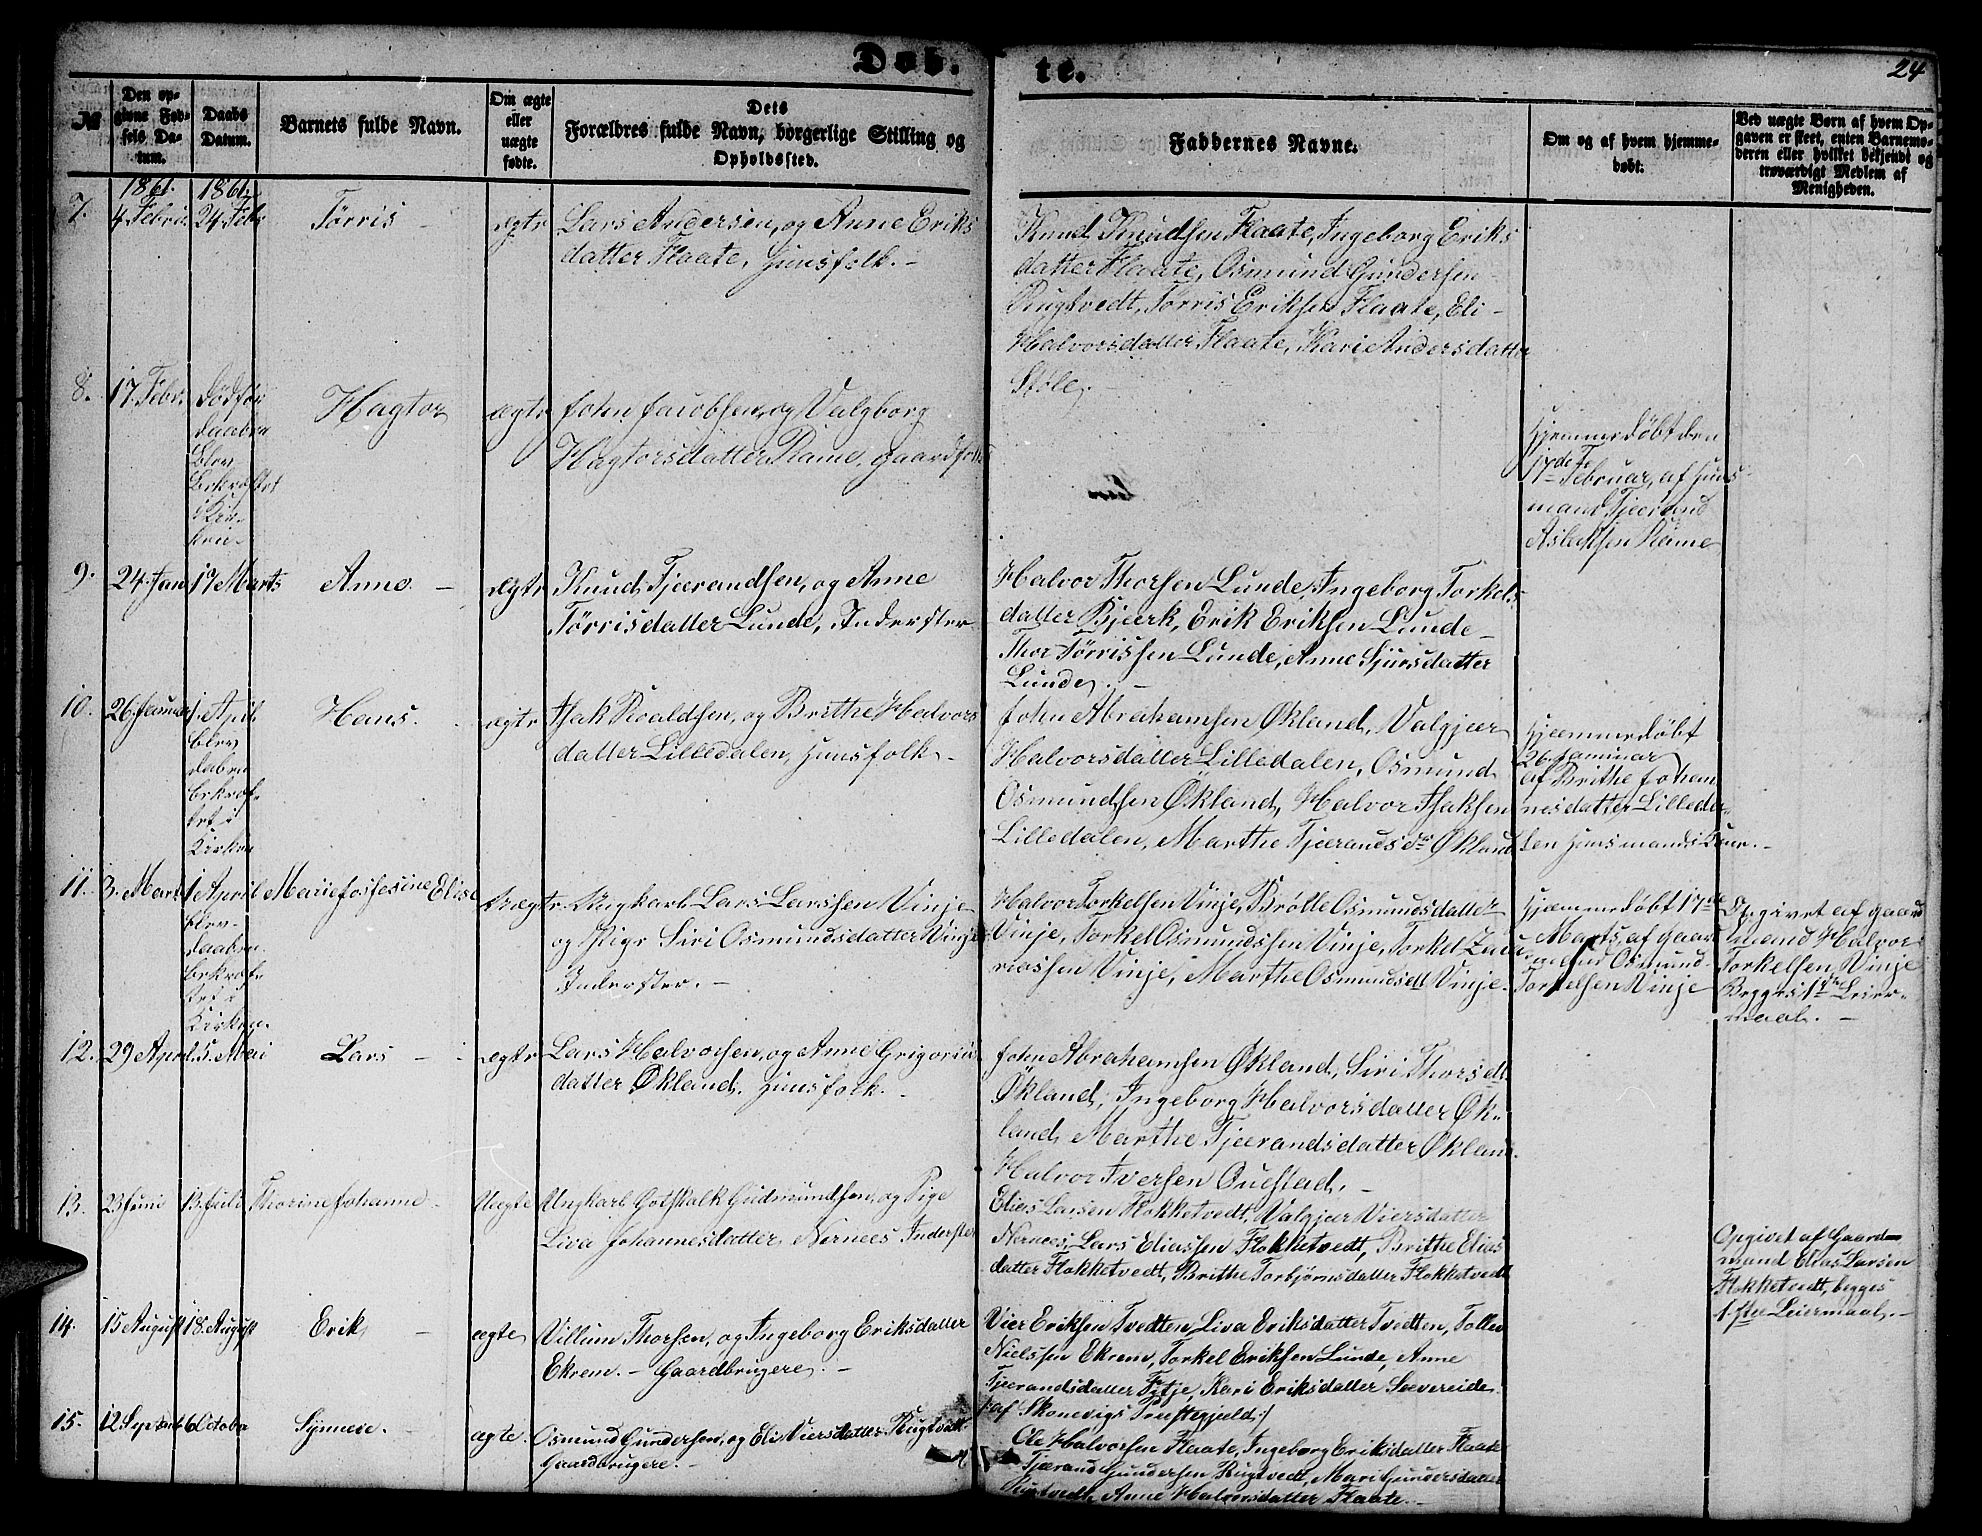 Døb-
te.
24
№
Den op-
givne Fød-
sels Da-
tum.
Daabs
Datum.
Barnets fulde Navn.
Om ægte
eller
uægte
fødte.
Dets
Forældres fulde Navn, borgerlige Stilling og
Opholdssted.
Faddernes Navne.
Om og af hvem hjemme-
døbt.
Ved uægte Børn af hvem Op-
gaven er skeet, enten Barnemo-
deren eller hvilket bekjendt og
troværdigt Medlem af
Menigheden.
1861. 1861.
7. 4 Febru. 24 Febr Tørris - ægte Lars Andersen, og Anne Eriks
datter Flaate, Huusfolk. -
Knud Knudsen Flaate, Ingeborg Eriks
datter Flaate, Osmund Gundersen
Rugtvedt, Tørris Eriksen Flaate, Eli -
Halvorsdatter Flaate, Kari Andersdatter
Støle. -
8. 17. Febr. død før
daaben
blev
bekræftet
i Kir-
ken -
Hagtor ægte John Jacobsen, og Valgborg
Hagtorsdatter Rame, Gaardfolk
Hjemmedøbt den
17de
Februar, af Huus
mand Tjerand
Aslaksen Rame
9. 24 Jan 17 Marts Anne. - ægte Knud Tjærandsen, og Anne
Tørrisdatter Lunde, Inderster
Halvor Thorsen Lunde, Ingeborg Torkels
datter Bjærk, Erik Eriksen Lunde -
Thor Tørrissen Lunde, Anne Sjursdatter
Lunde. -
10. 26 Januar 1. April
blev
daaben
bekræf-
tet i
Kirken
Hans. ægte Isak Roaldsen, og Brithe Halvors
datter Lilledalen, Huusfolk -
John Abrahamsen Økland, Valgjær
Halvorsdatter Lilledalen, Osmund
Osmundsen Økland, Halvor Isaksen
Lilledalen, Marthe Tjærandsdr Økland
Hjemmedøbt
26 Januar
af Brithe Johan
nesdatter Lilleda-
len Huusmands Kone. -
11. 3. Marts 1 April
blev
daaben
bekræf-
tet i
Kirken.
Marie Josefine Elise Uægte Ungkarl Lars Larssen Vinje
og Pige Siri Osmundsdatter Vinje
Inderster. -
Halvor Torkelsen Vinje, Brølte Osmundsdatter
Vinje, Torkel Osmundssen Vinje, Torkel Zacu
riassen Vinje, Marthe Osmundsdt Vinje.
Hjemmedøbt 17de
Marts, af Gaard
mand Osmund
Torkelsen Vinje
Opgivet af Gaard
mand Halvor
Torkelsen Vinje
Begges 1ste Leier-
maal. -
12. 29 April. 5. Mai Lars - ægte Lars Halvorsen, og Anne Grigorius
datter Økland. Huusfolk. -
John Abrahamsen Økland, Siri Thorsdt
Økland, Ingeborg Halvorsdatter Øk-
land, Marthe Tjærandsdatter Økland.
Halvor Iversen Øuestad. -
13. 23 Juni 13. Juli Thorine Johanne - Uægte Ungkarl Gotskalk Gudmundsen, og Pige
Liva Johannesdatter Nernæs Inderster
Elias Larsen Flokketvedt, Valgjær Viersdatter
Nernæs, Lars Eliassen Flokketvedt, Brithe Elias
datter Flokketvedt, Brithe Torbjørnsdatter Flokketvedt
Opgivet af Gaard
mand Elias Larsen
Flokketvedt, begges
1ste Leiermaal. -
14. 15 August 18. August Erik - ægte Villum Thorsen, og Ingeborg Eriksdatter
Ekrem. - Gaardbrugere. -
Vier Eriksen Tvedten, Liva Eriksdatter Tvedten, Tollev
Nielssen Ekrem, Torkel Eriksen Lunde, Anne
Tjærandsdatter Fitje, Kari Eriksdatter Sævereide
/: af Skonevigs Præstegjeld :/
15. 12 Septemb 6 October Synneve. - ægte. Osmund Gundersen, og Eli Viersdatter Rugtvedt
Gaardbrugere. -
Ole Halvorsen Flaate, Ingeborg Eriksdatter Flaate
Tjærand Gundersen Rugtvedt, Mari Gundersdatter
Rugtvedt, Anne Halvorsdatter Flaate. -